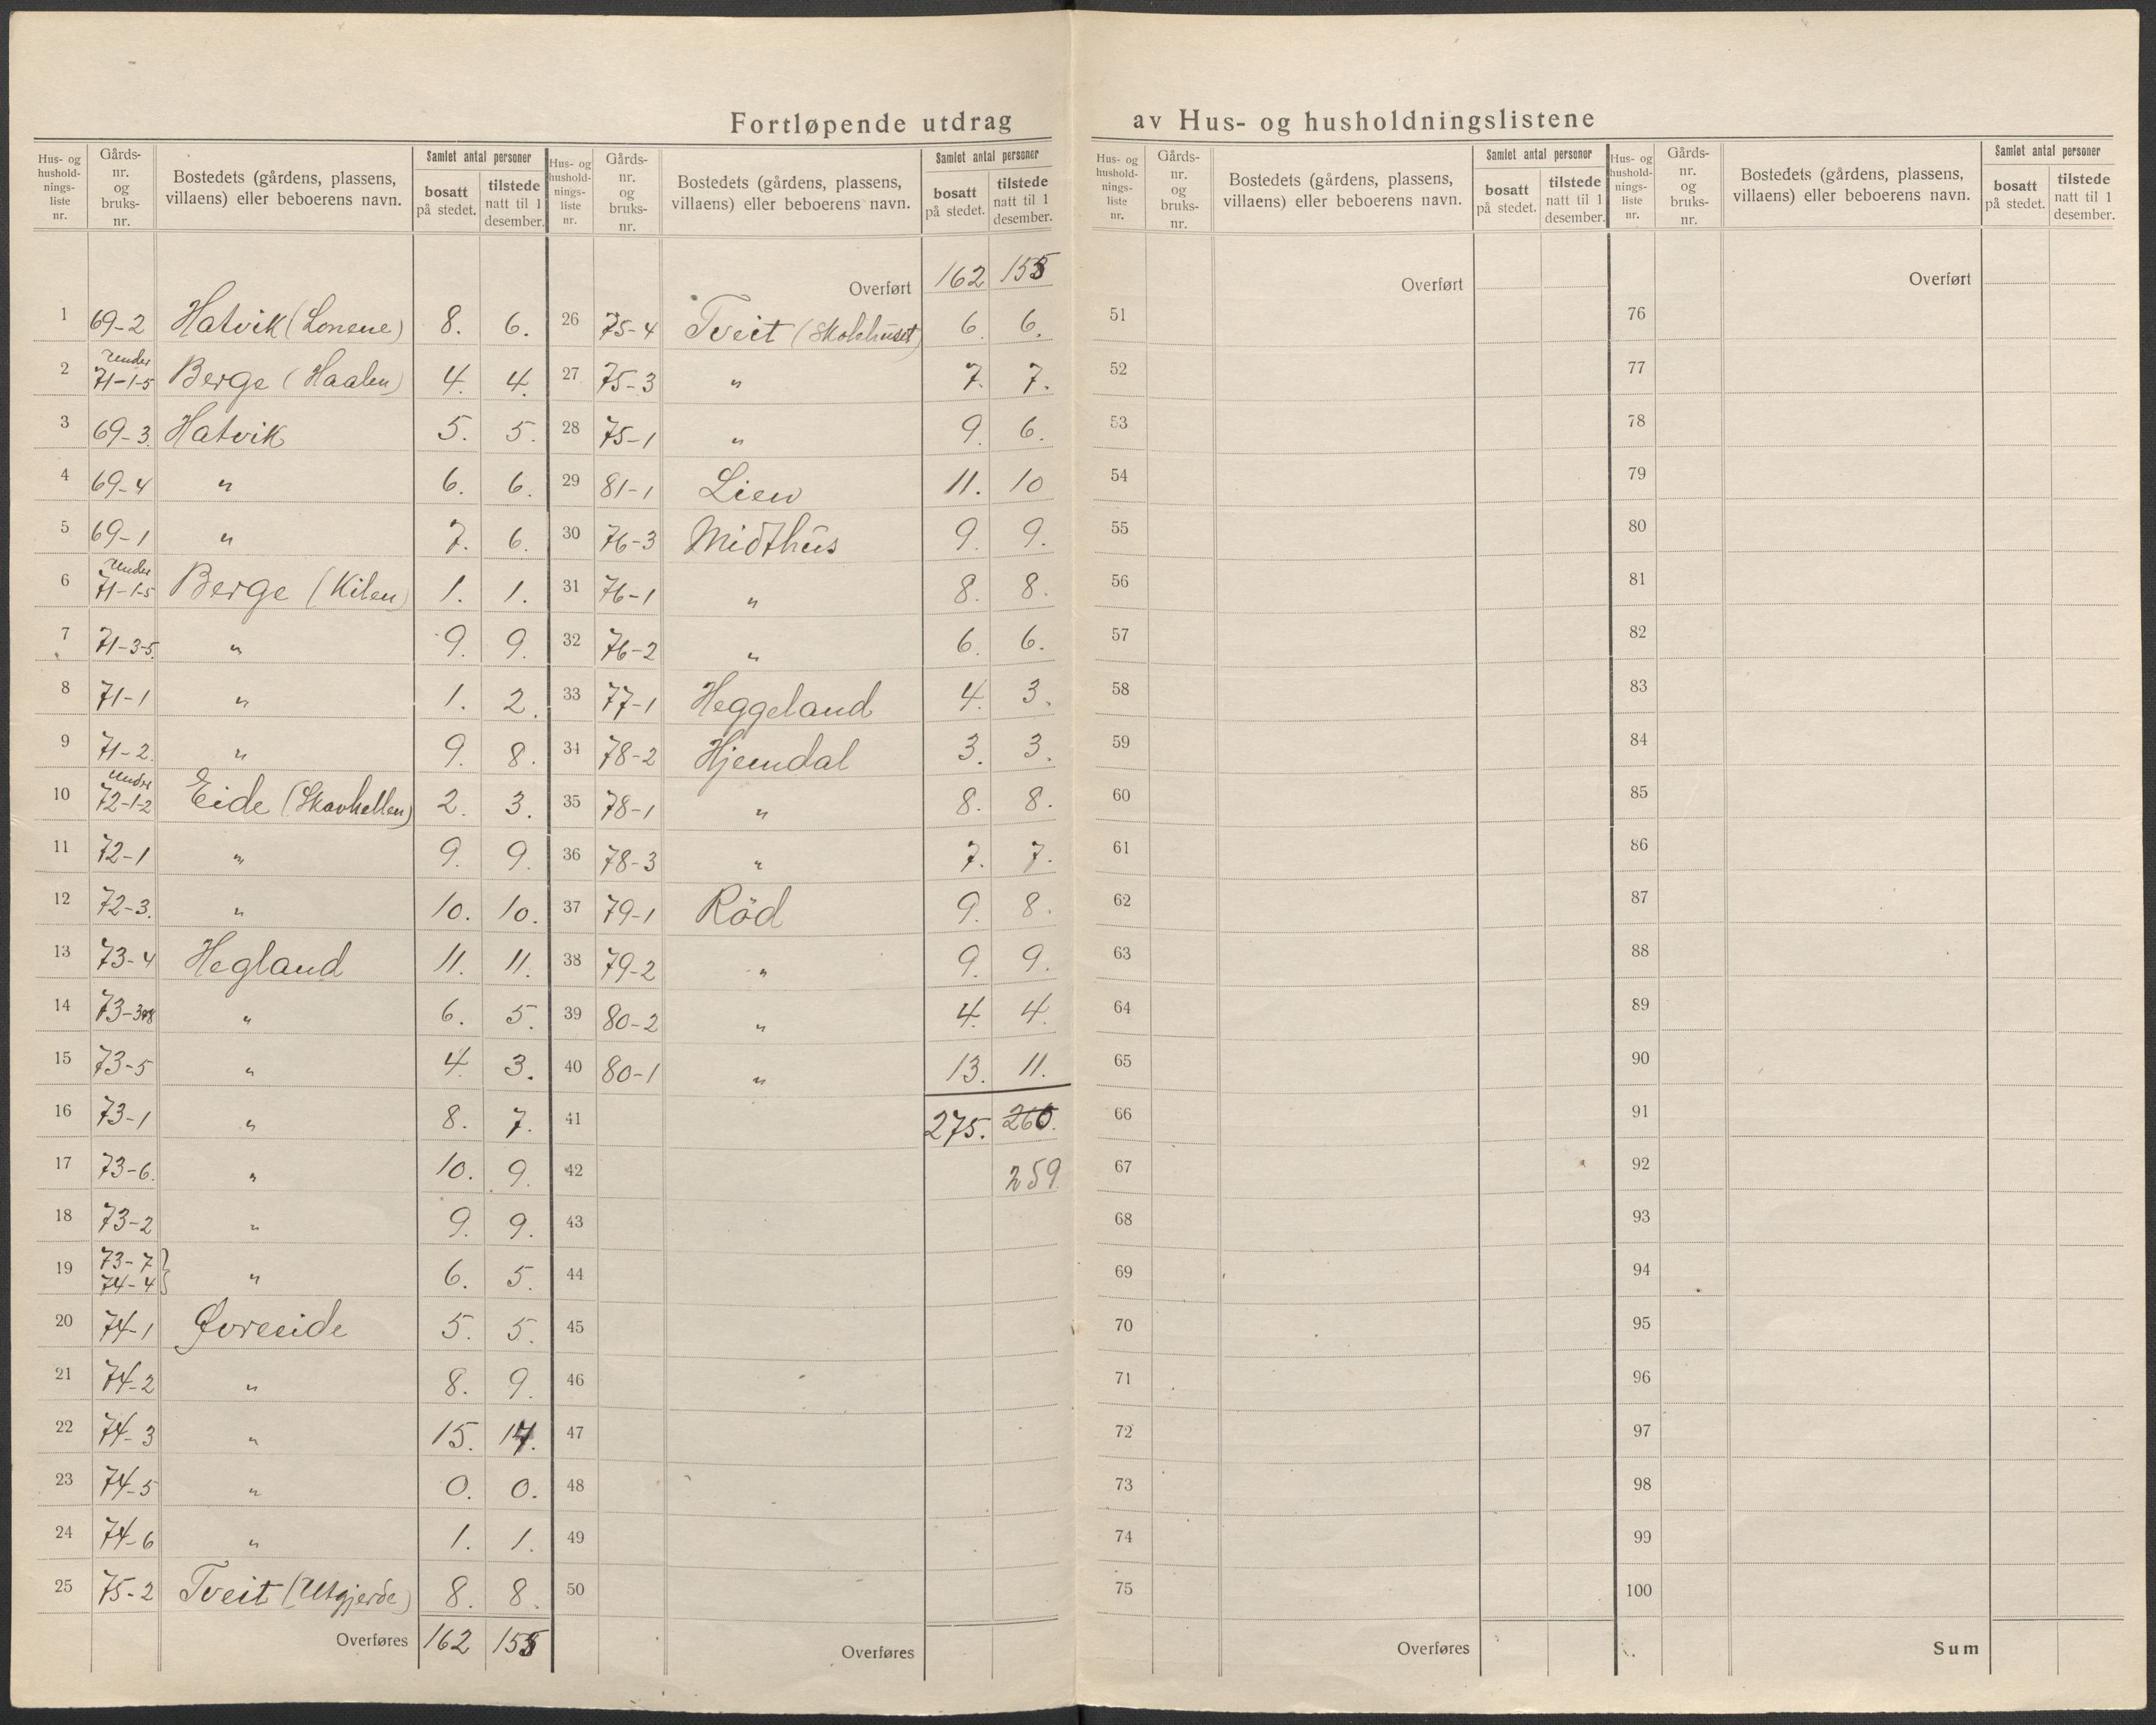 Fortløpende utdrag av Hus- og husholdningslistene
Hus- og hushold-nings-liste nr. | Gårds-nr. og bruks-nr. | Bostedets (gårdens, plassens, villaens) eller beboerens navn. | Samlet antal personer | bosatt på stedet. | tilstede natt til 1 desember.
1 69-2 Hatvik (Lonene) 8. 6.
2 Under 71-1-5 Berge (Haalen) 4. 4.
3 69-3. Hatvik 5. 5.
4 69-4 " 6. 6.
5 69-1 " 7. 6.
6 Under 71-1-5 Berge (Kilen) 1. 1.
7 71-3-5. " 9. 9.
8 71-1 " 1. 2.
9 71-2. " 9. 8.
10 Under 72-1-2 Eide (Skavhellen) 2. 3.
11 72-1 " 9. 9.
12 72-3. " 10. 10.
13 73-4 Hegland 11. 11.
14 73-3 " 6. 5.
15 73-5 " 4. 3.
16 73-1 " 8. 7.
17 73-6. " 10. 9.
18 73-2 " 9. 9.
19 73-7 74-4 } " 6. 5.
20 74-1 Øvreeide 5. 5.
21 74-2 " 8. 9.
22 74-3 " 15. 14.
23 74-5 " 0. 0.
24 74-6 " 1. 1.
25 75-2 Tveit (Utgjerde) 8. 8.
Overføres 162 155
Hus- og hushold-nings-liste nr. | Gårds-nr. og bruks-nr. | Bostedets (gårdens, plassens, villaens) eller beboerens navn. | Samlet antal personer | bosatt på stedet. | tilstede natt til 1 desember.
Overført 162 155
26 75-4 Tveit (Skolehuset) 6. 6.
27 75-3 " 7. 7.
28 75-1 " 9. 6.
29 81-1 Lien 11. 10
30 76-3 Midthus 9. 9.
31 76-1 " 8. 8.
32 76-2 " 6. 6.
33 77-1 Heggeland 4. 3.
34 78-2 Hjemdal 3. 3.
35 78-1 " 8. 8.
36 78-3 " 7. 7.
37 79-1 Röd 9. 8.
38 79-2 " 9. 9.
39 80-2 " 4. 4.
40 80-1 " 13. 11.
41 275. 260.
42 259
43
44
45
46
47
48
49
50
Overføres
Hus- og hushold-nings-liste nr. | Gårds-nr. og bruks-nr. | Bostedets (gårdens, plassens, villaens) eller beboerens navn. | Samlet antal personer | bosatt på stedet. | tilstede natt til 1 desember.
Overført
51
52
53
54
55
56
57
58
59
60
61
62
63
64
65
66
67
68
69
70
71
72
73
74
75
Overføres
Hus- og hushold-nings-liste nr. | Gårds-nr. og bruks-nr. | Bostedets (gårdens, plassens, villaens) eller beboerens navn. | Samlet antal personer | bosatt på stedet. | tilstede natt til 1 desember.
Overført
76
77
78
79
80
81
82
83
84
85
86
87
88
89
90
91
92
93
94
95
96
97
98
99
100
Sum